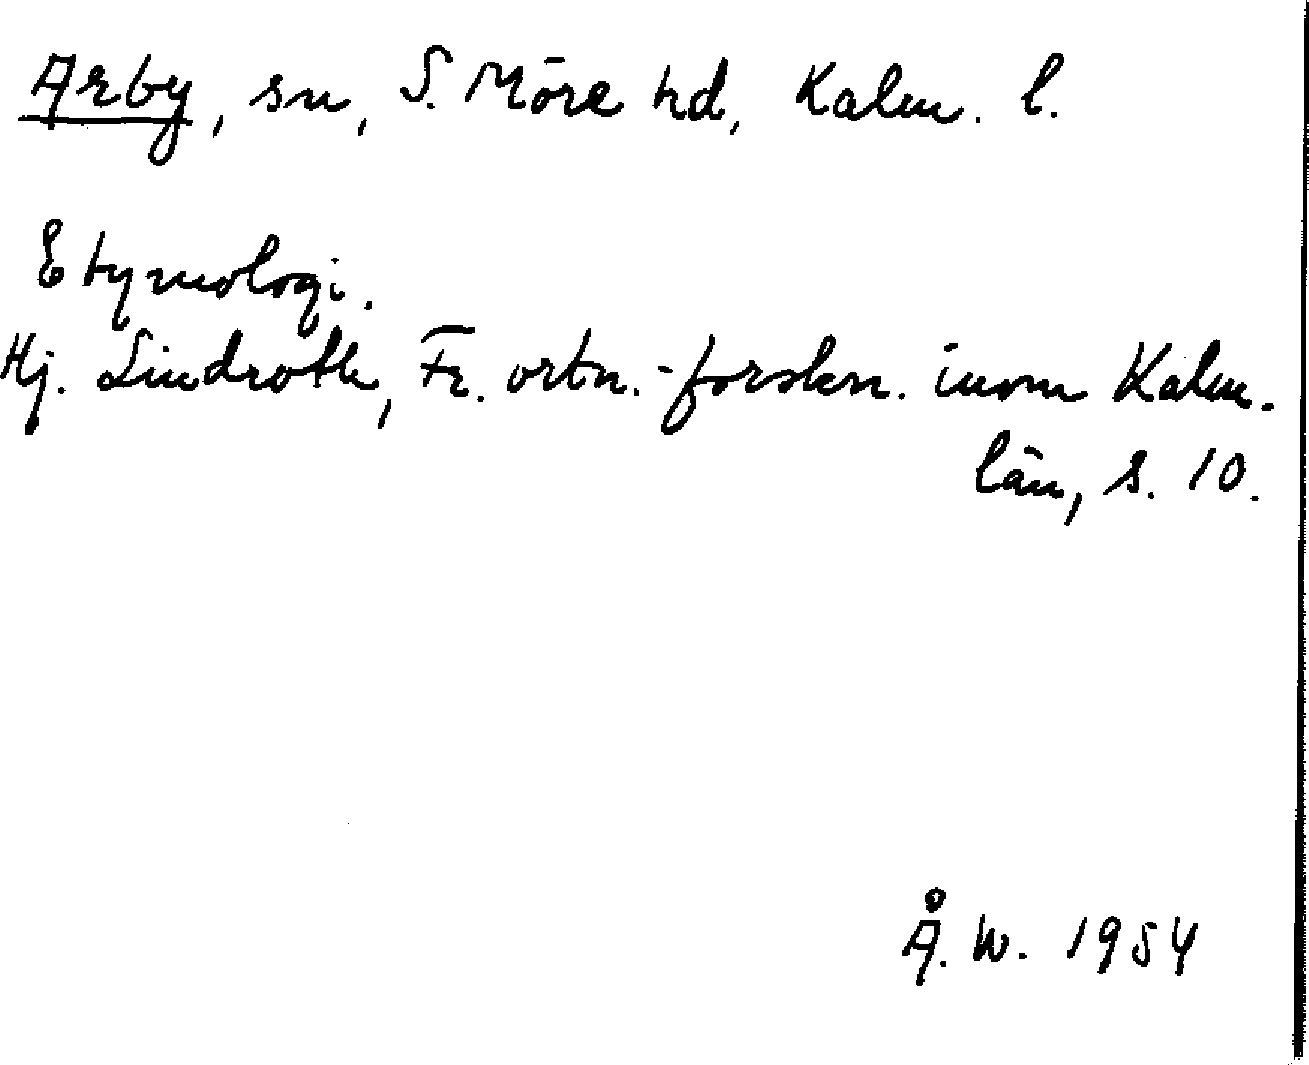 Arby, sn, S. Möre hd, Kalm. l.
Etymologi.
Hj. Lindroth, Fr. ortn.-forskn. inom Kalm.
län, s. 10.
Å. W. 1954